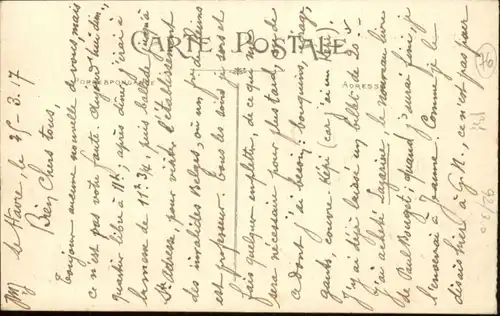 CARTE POSTALE
CORRESPONDANCE
ADRESSE
le Havre, le 25-3.17
Bien chers tous,
Toujours aucune nouvelle de vous, mais
ce n'est pas votre faute. Aujourd'hui dim.,
quartier libre à 11h., après dîner, j'irai à
la messe de 11h 3/4, puis ballade jusqu'à
Ste Adresse, pour visiter l'établissement
des invalides Belges, où un
est professeur. Tous les soirs je sors et
fais quelque emplette, de ce qui me
sera nécessaire pour plus tard, ou de
ce dont j'ai besoin: bouquins,
gants, couvre Képi (car j'ai un Képi).
J'y ai déjà laissé un billet de 20.
J'ai acheté Lazarine, le nouveau livre
de Paul Bourget; quand j'aurai fini, je
l'enverrai à Jeanne. Comme je le
disais hier à G.M., ce n'est pas pour